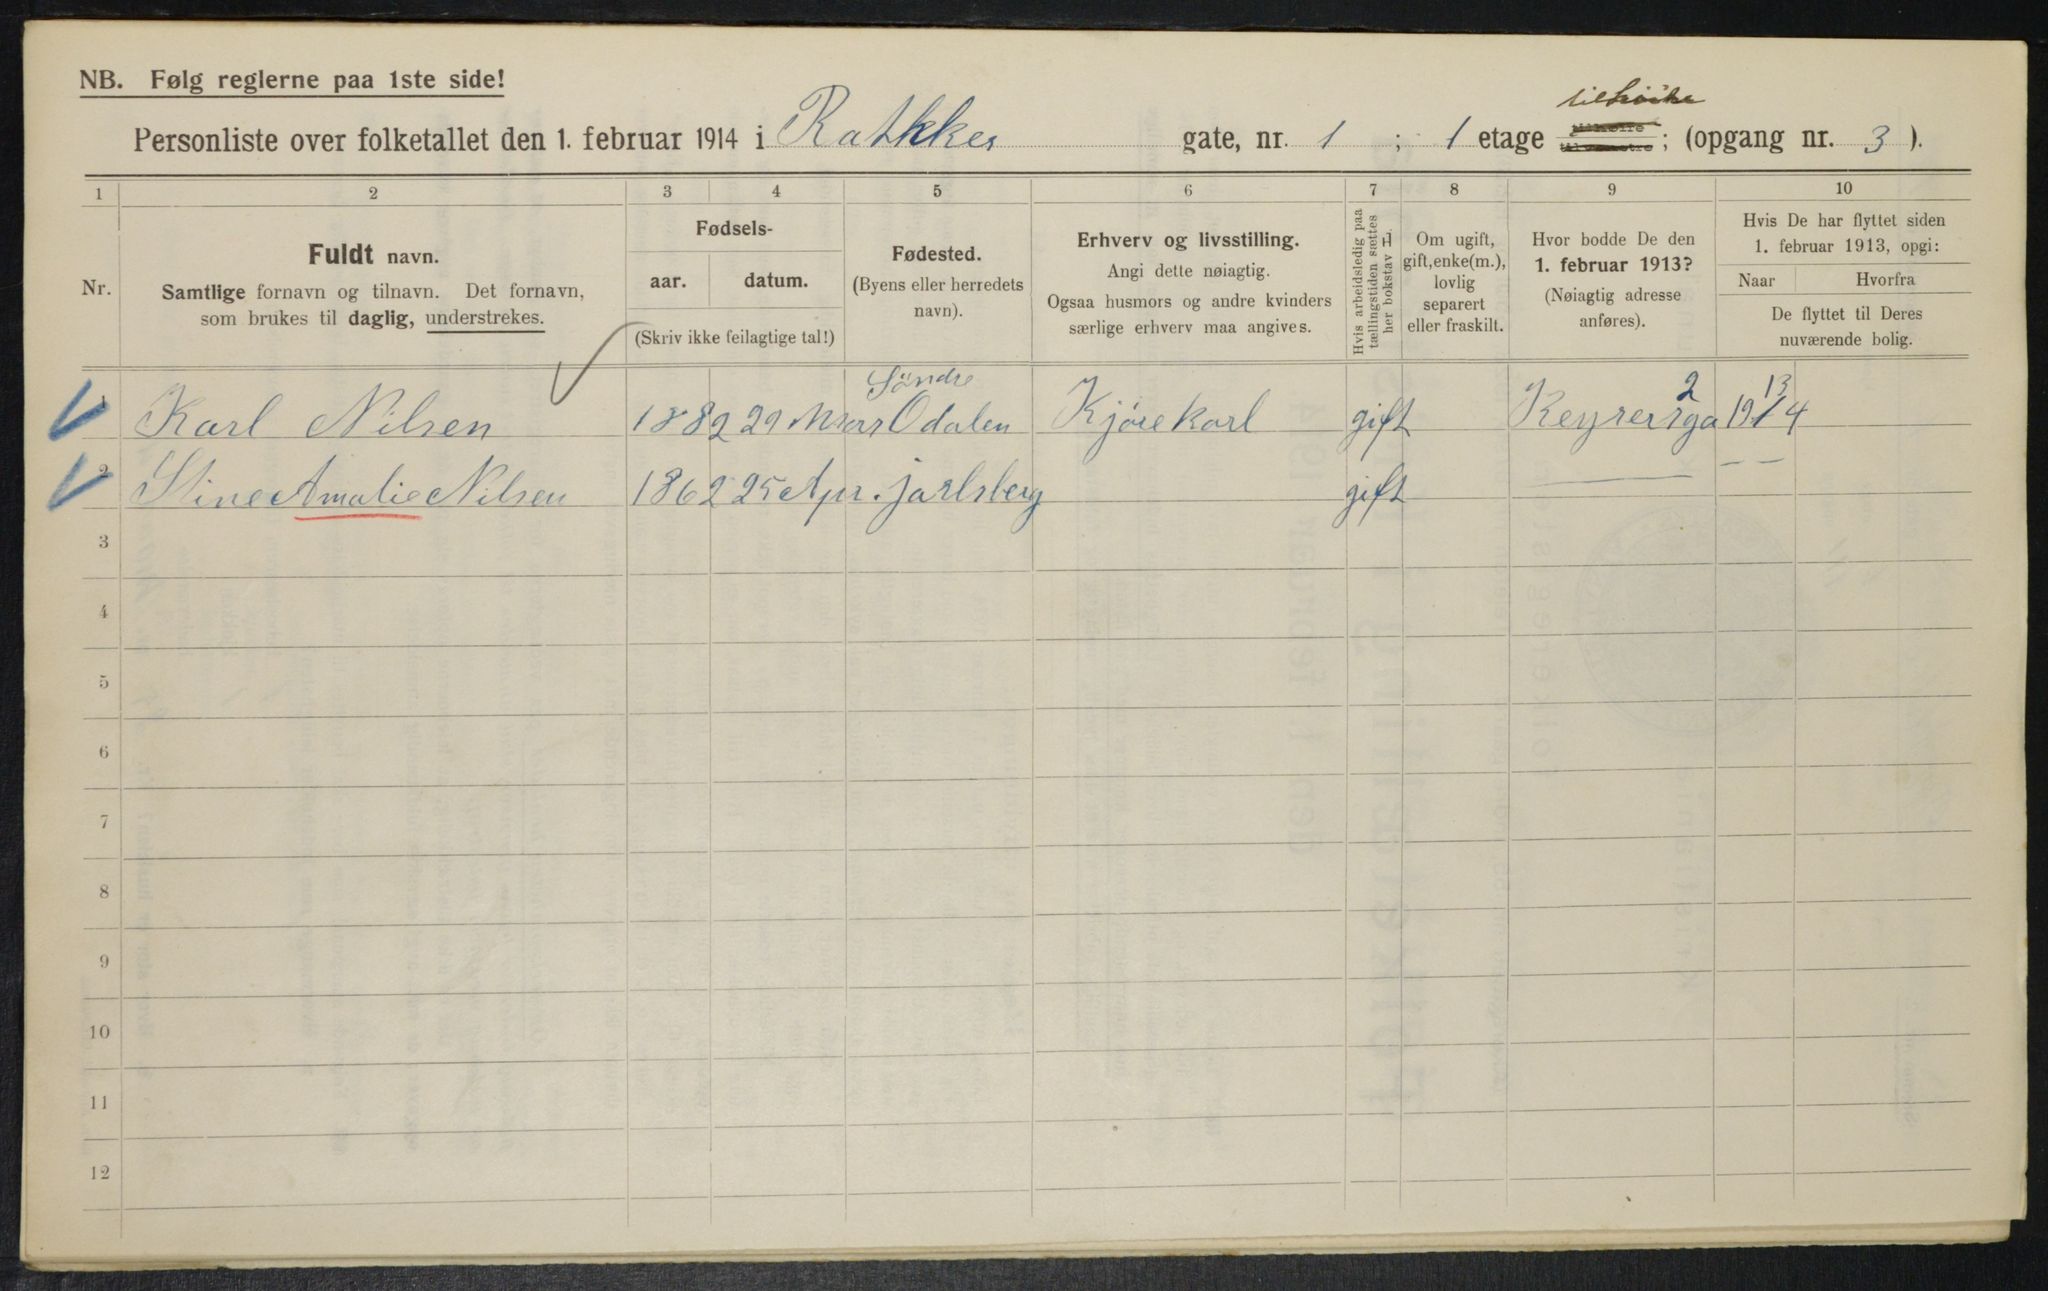 NB. Følg reglerne paa 1ste side!
Personliste over folketallet den 1. februar 1914 i Rathkes gate, nr. 1 ; 1 etage tilhøire ; (opgang nr. 3 ).
1 2 3 4 5 6 7 8 9 10
Nr.
Fuldt navn.
Samtlige fornavn og tilnavn. Det fornavn,
som brukes til daglig, understrekes.
Fødsels-
aar. datum.
(Skriv ikke feilagtige tal!)
Fødested.
(Byens eller herredets
navn).
Erhverv og livsstilling.
Angi dette nøiagtig.
Ogsaa husmors og andre kvinders
særlige erhverv maa angives.
Hvis arbeidsledig paa
tællingstiden sættes
her bokstav L.
Om ugift,
gift, enke(m.),
lovlig
separert
eller fraskilt.
Hvor bodde De den
1. februar 1913?
(Nøiagtig adresse
anføres).
Hvis De har flyttet siden
1. februar 1913, opgi:
Naar Hvorfra
De flyttet til Deres
nuværende bolig.
1 Karl Nilsen 1882 29 Mars Söndre Odalen Kjørekarl gift Keysersga 2 19 13/1 4
2 Stine Amalie Nilsen 1862 25 Apr. jarlsberg gift — — —
3
4
5
6
7
8
9
10
11
12